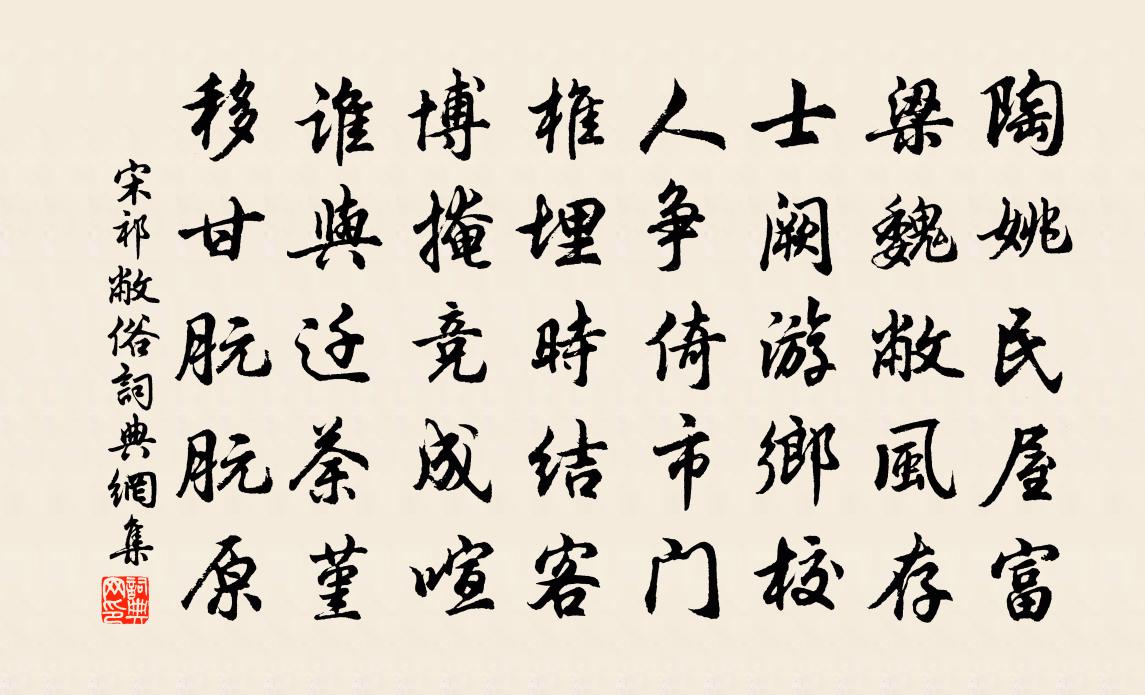 陶姚民屋富
梁魏敝風存
士阙游鄉校
人争倚市门
椎埋時结客
博掩竞成喧
誰與迁荼堇
移甘朊朊原
宋祁敝俗詞典網集
詞典网印